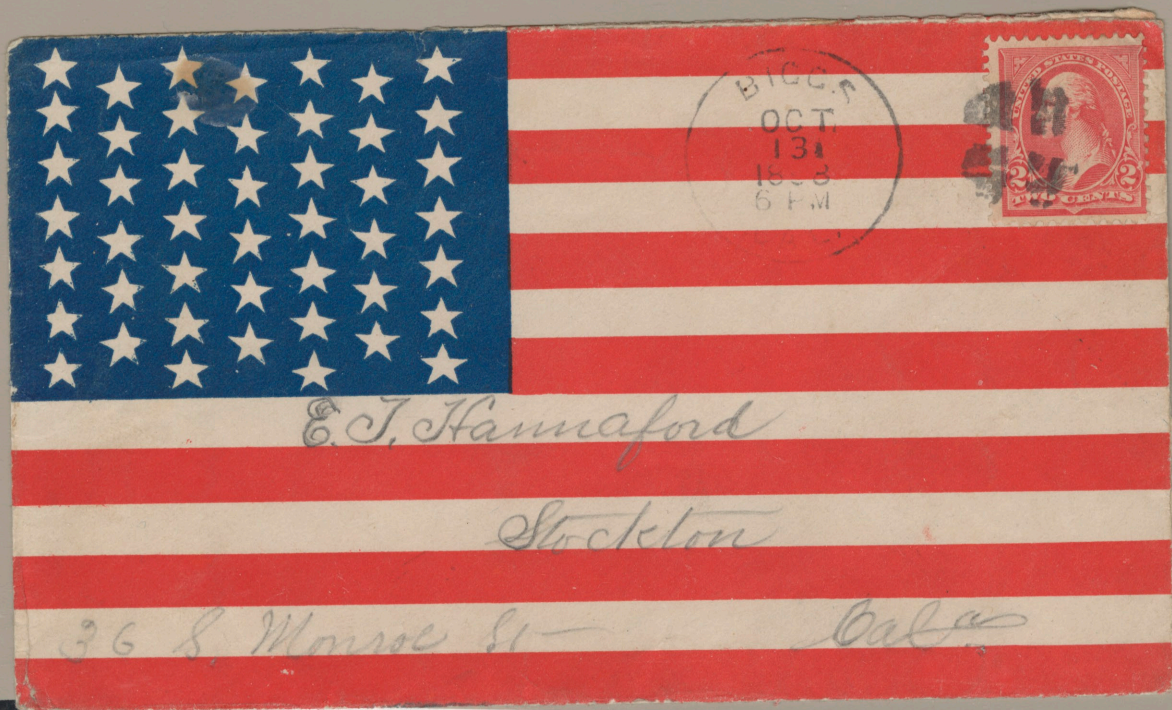 BIGGS
OCT
13
6 PM
UNITED STATES POSTAGE
2 2
TWO CENTS
E. J. Hannaford
Stockton
36 S. Monroe St
Cala